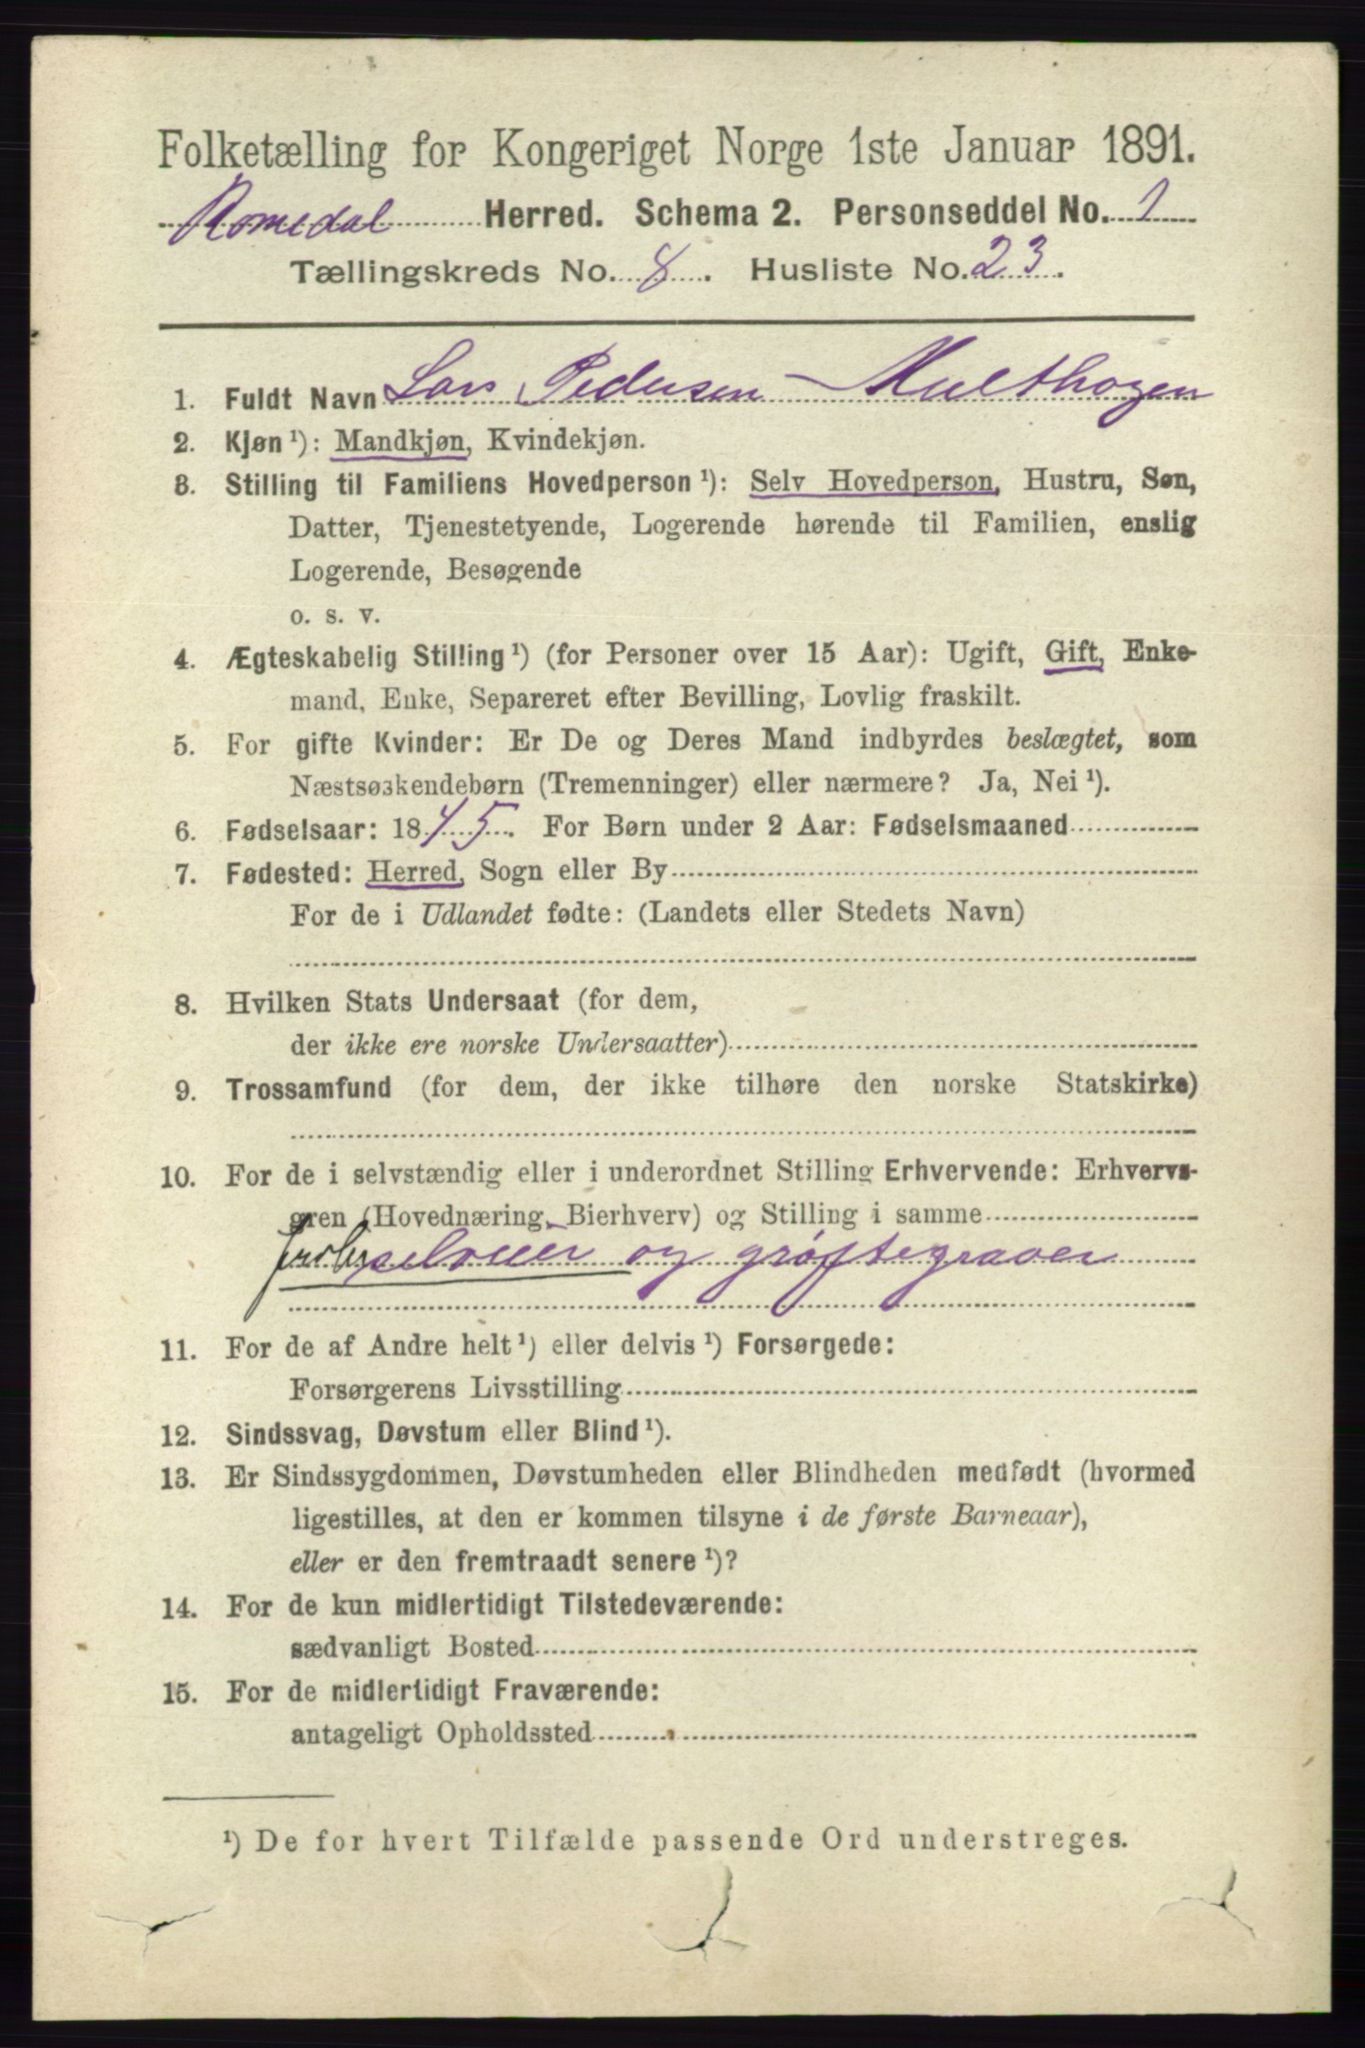 Folketælling for Kongeriget Norge 1ste Januar 1891.
Romedal Herred. Schema 2. Personseddel No. 1
Tællingskreds No. 8. Husliste No. 23.
1. Fuldt Navn Lars Pedersen Multhogen
2. Kjøn ¹): Mandkjøn, Kvindekjøn.
3. Stilling til Familiens Hovedperson ¹): Selv Hovedperson, Hustru, Søn,
Datter, Tjenestetyende, Logerende hørende til Familien, enslig
Logerende, Besøgende
o. s. v.
4. Ægteskabelig Stilling ¹) (for Personer over 15 Aar): Ugift, Gift, Enke-
mand, Enke, Separeret efter Bevilling, Lovlig fraskilt.
5. For gifte Kvinder: Er De og Deres Mand indbyrdes beslægtet, som
Næstsøskendebørn (Tremenninger) eller nærmere? Ja, Nei ¹).
6. Fødselsaar: 1845. For Børn under 2 Aar: Fødselsmaaned
7. Fødested: Herred, Sogn eller By
For de i Udlandet fødte: (Landets eller Stedets Navn)
8. Hvilken Stats Undersaat (for dem,
der ikke ere norske Undersaatter)
9. Trossamfund (for dem, der ikke tilhøre den norske Statskirke)
10. For de i selvstændig eller i underordnet Stilling Erhvervende: Erhvervs-
gren (Hovednæring, Bierhverv) og Stilling i samme
selveier og grøftegraver
11. For de af Andre helt ¹) eller delvis ¹) Forsørgede:
Forsørgerens Livsstilling
12. Sindssvag, Døvstum eller Blind ¹).
13. Er Sindssygdommen, Døvstumheden eller Blindheden medfødt (hvormed
ligestilles, at den er kommen tilsyne i de første Barneaar),
eller er den fremtraadt senere ¹)?
14. For de kun midlertidigt Tilstedeværende:
sædvanligt Bosted
15. For de midlertidigt Fraværende:
antageligt Opholdssted
¹) De for hvert Tilfælde passende Ord understreges.